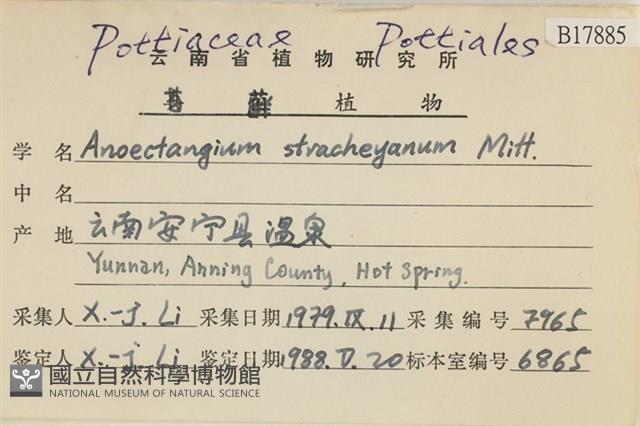 Pottiaceae Pottiales B17885
云南省植物研究所
苔藓植物
学名 Anoectangium stracheyanum Mitt.
中名
产地 云南安宁县温泉
Yunnan, Anning County, Hot Spring.
采集人 X.-J. Li 采集日期 1979.IX.11 采集编号 7965
鉴定人 X.-J. Li 鉴定日期 1988.V.20 标本室编号 6865
國立自然科學博物館
NATIONAL MUSEUM OF NATURAL SCIENCE